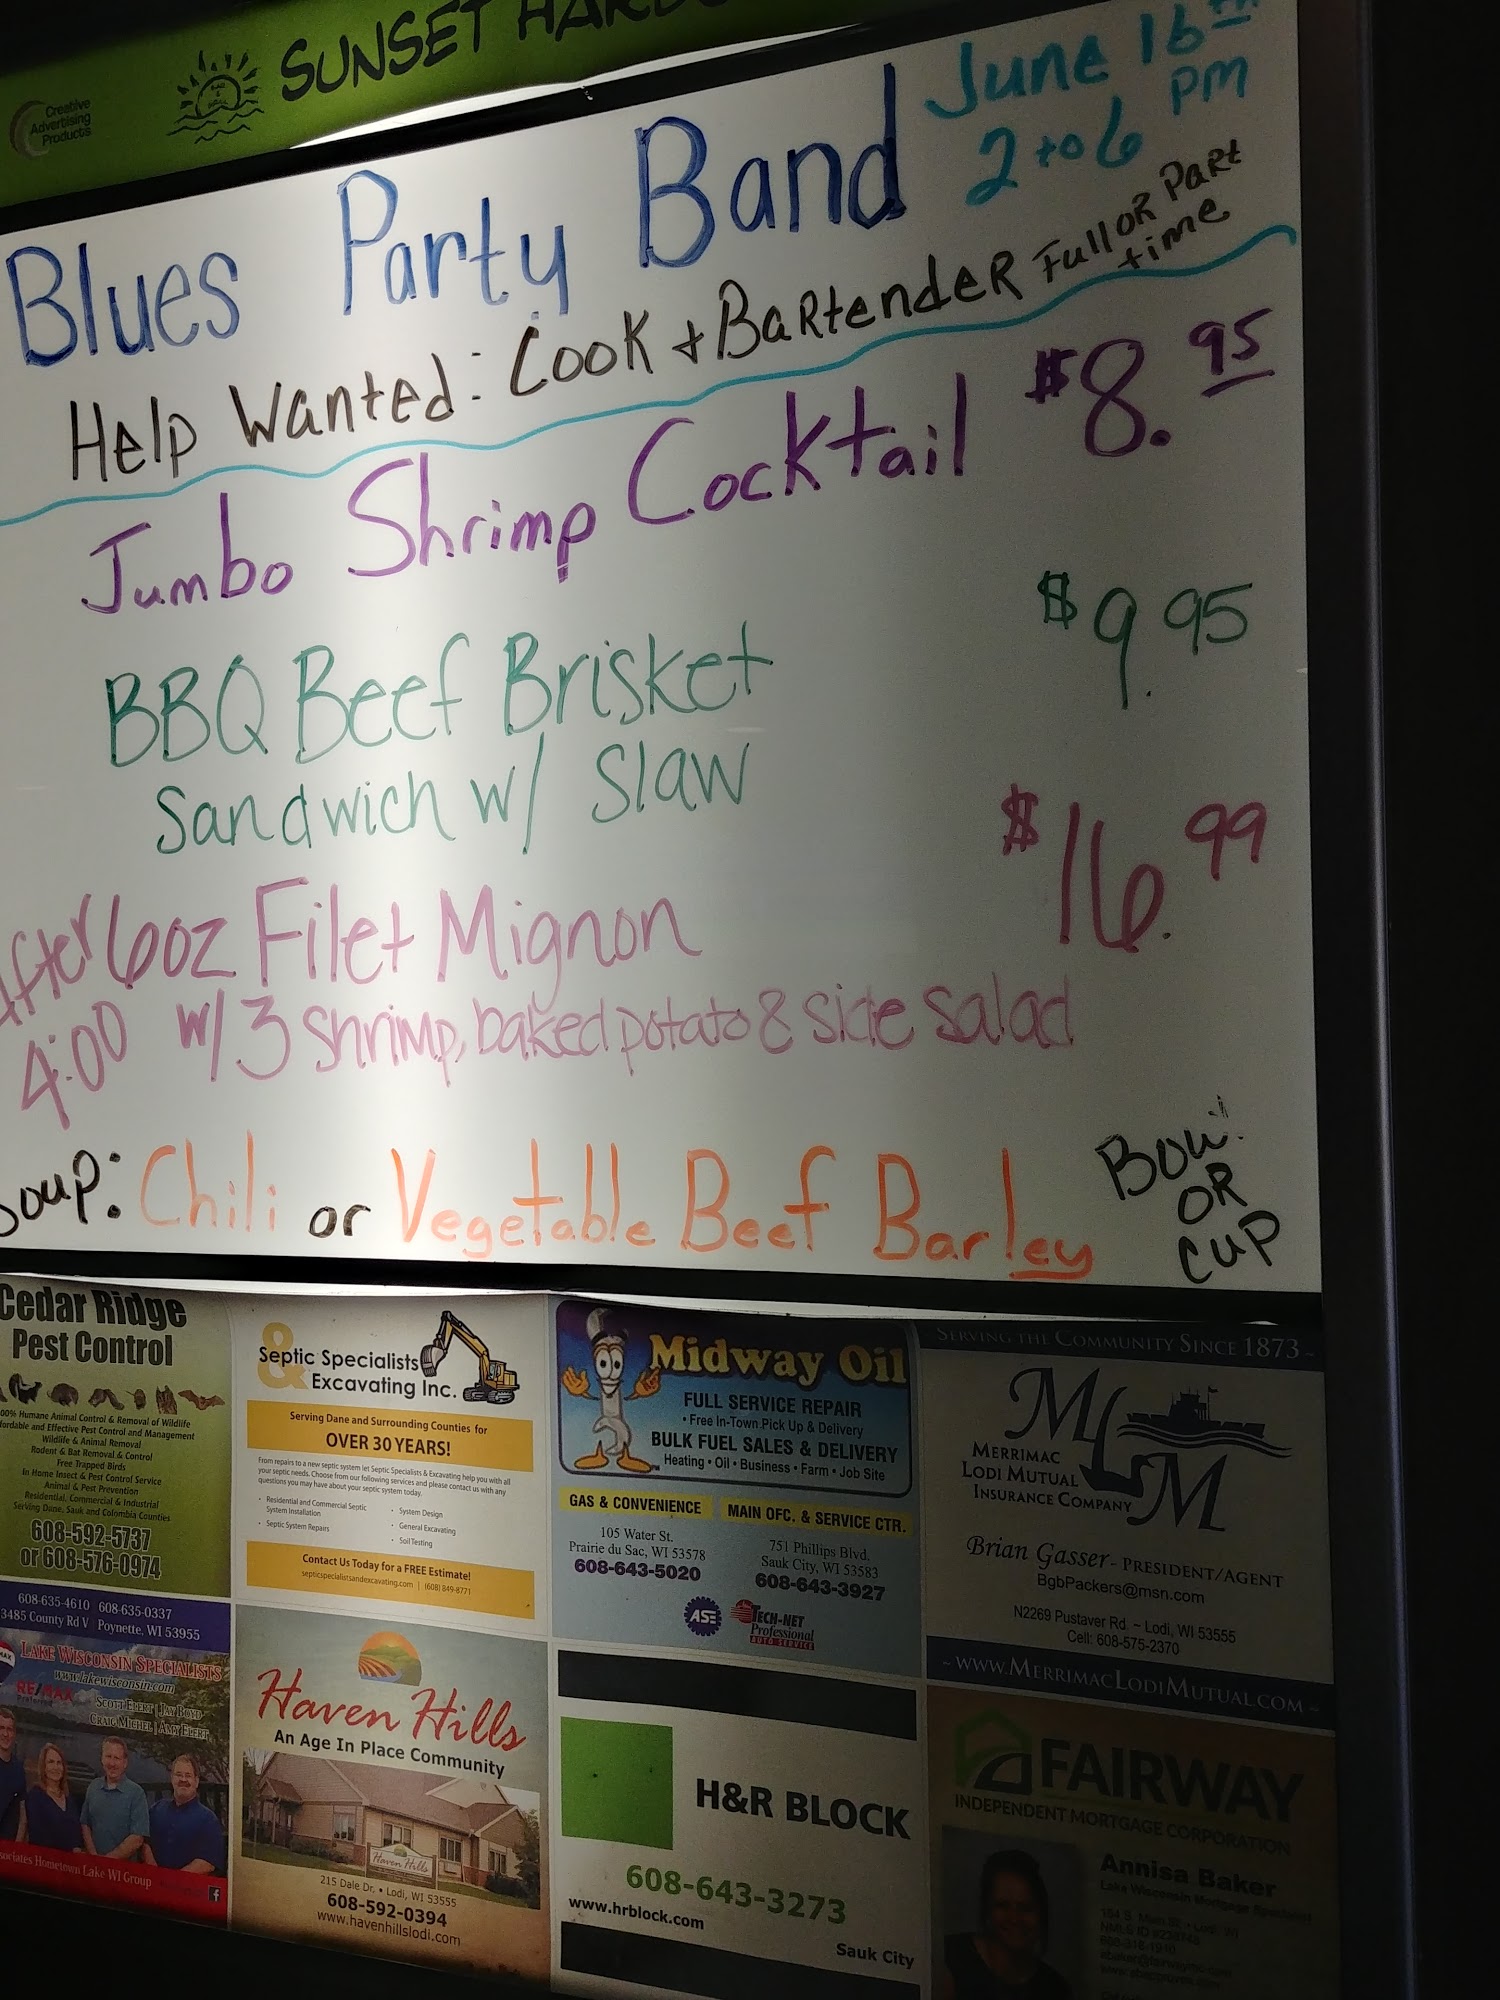 Creative
Advertising
Products
SUNSET
Blues Party Band
June 16th
2 to 6 PM
Help Wanted: Cook + Bartender Full or Part
time
Jumbo Shrimp Cocktail $8.95
BBQ Beef Brisket $9.95
Sandwich w/ Slaw
After 6oz Filet Mignon $16.99
4:00 w/ 3 shrimp, baked potato & side salad
Soup: Chili or Vegetable Beef Barley
Bowl
OR
Cup
Cedar Ridge
Pest Control
100% Humane Animal Control & Removal of Wildlife
Affordable and Effective Pest Control and Management
Wildlife & Animal Removal
Rodent & Bat Removal & Control
Free Trapped Birds
In Home Insect & Pest Control Service
Animal & Pest Prevention
Residential, Commercial & Industrial
Serving Dane, Sauk and Columbia Counties
608-592-5737
or 608-576-0974
Septic Specialists
& Excavating Inc.
Serving Dane and Surrounding Counties for
OVER 30 YEARS!
From repairs to a new septic system let Septic Specialists & Excavating help you with all
your septic needs. Choose from our following services and please contact us with any
questions you may have about your septic system today.
• Residential and Commercial Septic
System Installation
• Septic System Repairs
• System Design
• General Excavating
• Soil Testing
Contact Us Today for a FREE Estimate!
septicspecialistsandexcavating.com | (608) 849-8771
Midway Oil
FULL SERVICE REPAIR
• Free In-Town Pick Up & Delivery
BULK FUEL SALES & DELIVERY
Heating • Oil • Business • Farm • Job Site
GAS & CONVENIENCE
105 Water St.
Prairie du Sac, WI 53578
608-643-5020
MAIN OFC. & SERVICE CTR.
751 Phillips Blvd.
Sauk City, WI 53583
608-643-3927
ASE
TECH-NET
Professional
AUTO SERVICE
SERVING THE COMMUNITY SINCE 1873 ~
MLM
MERRIMAC
LODI MUTUAL
INSURANCE COMPANY
Brian Gasser - PRESIDENT/AGENT
BgbPackers@msn.com
N2269 Pustaver Rd. ~ Lodi, WI 53555
Cell: 608-575-2370
~ WWW.MERRIMACLODIMUTUAL.COM ~
608-635-4610 608-635-0337
3485 County Rd V Poynette, WI 53955
LAKE WISCONSIN SPECIALISTS
www.lakewisconsin.com
RE/MAX
Preferred
SCOTT ELERT | JAY BOYD
CRAIG MICHEL | AMY ELERT
Hometown Lake WI Group
Haven Hills
An Age In Place Community
Haven Hills
215 Dale Dr. • Lodi, WI 53555
608-592-0394
www.havenhillslodi.com
H&R BLOCK
608-643-3273
www.hrblock.com
Sauk City
FAIRWAY
INDEPENDENT MORTGAGE CORPORATION
Annisa Baker
Lake Wisconsin Mortgage Specialist